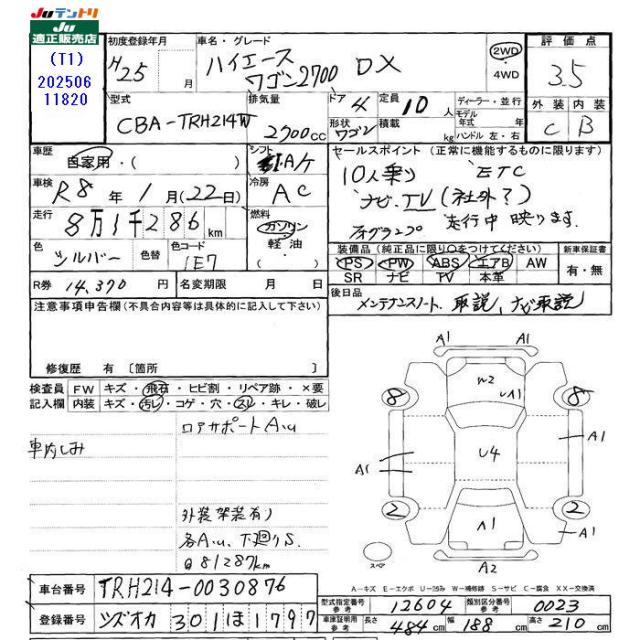 JUテントリ
JU
適正販売店
(T1)
202506
11820
初度登録年月
H25 月
車名・グレード
ハイエース
ワゴン2700 DX
2WD
・
4WD
評価点
3.5
型式
CBA-TRH214W
排気量
2700cc
ドア 4
定員 10人
ディーラー・並行
モデル年式 年
形状 ワゴン
積載 kg
ハンドル 左・右
外装 内装
C B
車歴
自家用・( )
シフト
A/T
車検
R8年1月(22日)
冷房
AC
走行
8万1千286km
燃料
ガソリン
・
軽油
・
( )
色
シルバー
色替
色コード
1E7
R券 14,370円
名変期限 月 日
セールスポイント(正常に機能するものに限ります)
10人乗り ETC
ナビ、TV(社外?)
走行中映ります。
装備品(純正品に限り○をつけてください)
新車保証書
PS PW ABS エアB AW
SR ナビ TV 本革
有・無
後日品
メンテナンスノート、取説、ナビ取説
注意事項申告欄(不具合内容等は具体的に記入して下さい)
修復歴 有〔箇所 〕
検査員
記入欄
FW キズ・飛石・ヒビ割・リペア跡・×要
内装 キズ・汚レ・コゲ・穴・スレ・キレ・破レ
ロアサポートAu
車内しみ
外装架装有り
各Au、下廻りS
@81287km
A1
W2
UA1
8 8
A1
U4
A1
2 2
A1
A1
A2
スペア
A-キズ E-エクボ U-凹み W-補修跡 S-サビ C-腐食 XX-交換済
車台番号 TRH214-0030876
登録番号 シズオカ 301 ほ 1797
型式指定番号 参考 12604
類別区分番号 参考 0023
車庫証明用 参考
長さ 484cm 幅 188cm 高さ 210cm